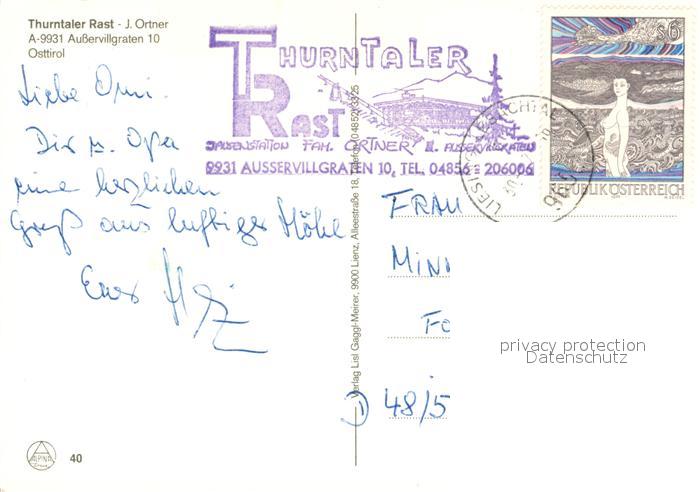 Thurntaler Rast - J. Ortner
A-9931 Außervillgraten 10
Osttirol
Liebe Omi.
Dir u. Opa
eine herzlichen
Gruß aus luftiger Höhe
Euer
THURNTALER
RAST
JAUSENSTATION FAM. ORTNER AUSSERVILLGRATEN
9931 AUSSERVILLGRATEN 10, TEL. 04856 206006
S 6
REPUBLIK ÖSTERREICH
Verlag Lisl Gaggl-Meirer, 9900 Lienz, Alleestraße 18, Telefon (04852) 3325
FRAU
MINI
FO
D 48/5
privacy protection
Datenschutz
ALPINA
40